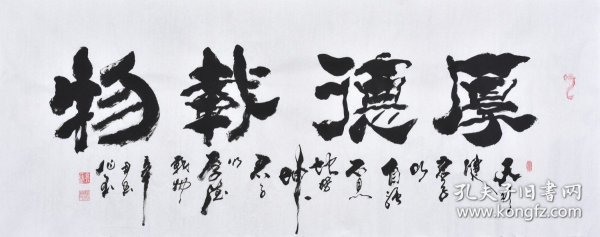 厚德载物
天行健
君子
以
自强
不息
地势
坤
君子
以
厚德
载物
孔夫子旧书网
www.kongfz.com